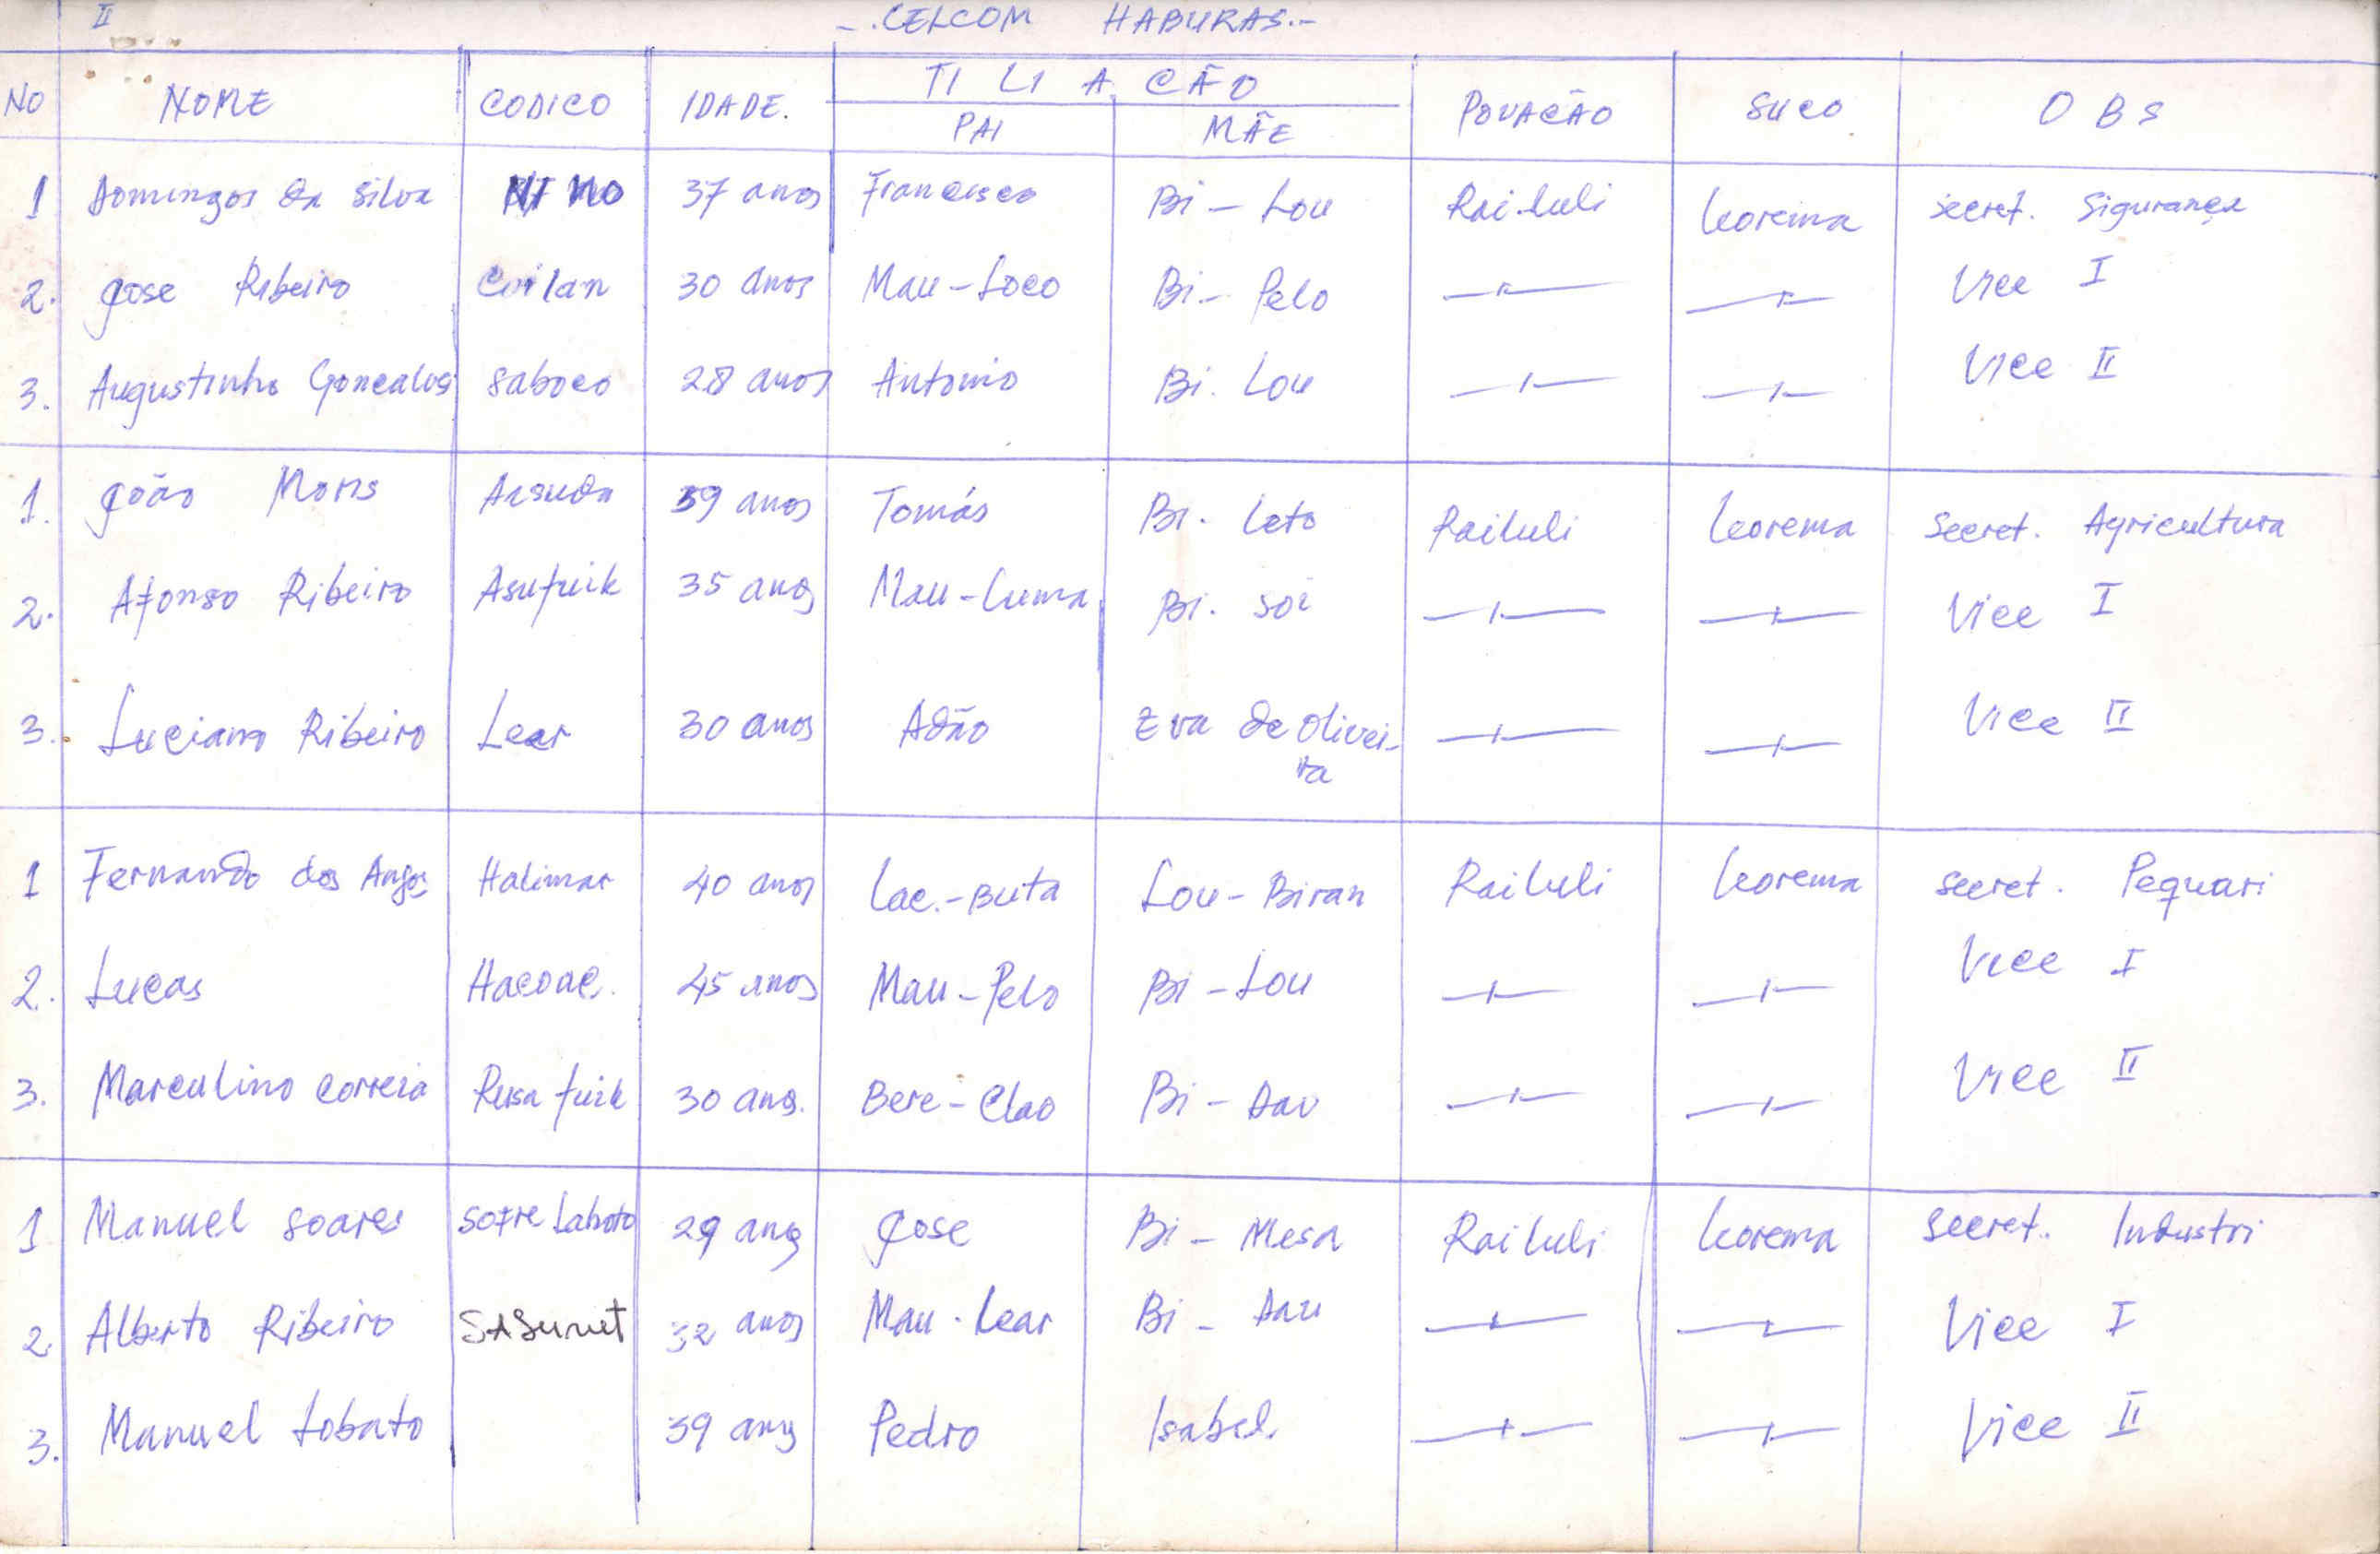 II -.CELCOM HABURAS.-
NO NOME CODICO IDADE. TILIACÃO POVACÃO SUCO OBS
PAI MÃE
1 Domingos da Silva NINO 37 anos Francisco Bi - Lou Railuli Leorema secret. Sigurança
2. Jose Ribeiro 30 anos Mau-Loco Bi- Pelo Vice I
3. Augustinho Goncalves saboco 28 anos Antonio Bi. Lou Vice II
1. João Moris 39 anos Tomás Bi. Leto Railuli Leorema Secret. Agricultura
2. Afonso Ribeiro Asufuik 35 anos Mau-Luma Bi. Soi Vice I
3. Luciano Ribeiro Lear 30 anos Adão Eva de Olivei-
ra Vice II
1 Fernando dos Anjos Halimar 40 anos Lac.-Buta Lou-Biran Railuli Leorema secret. Pequari
2. Lucas Hacoac. 45 anos Mau-Pelo Bi-Lou Vice I
3. Marculino correia Rusa fuik 30 anos. Bere-Clao Bi-Dau Vice II
1 Manuel soares sofre Laboto 29 anos Jose Bi - Mesa Railuli Leorema secret. Industri
2. Alberto Ribeiro SASurut 32 anos Mau. Lear Bi - Dau Vice I
3. Manuel Lobato 39 anos Pedro Isabel. Vice II